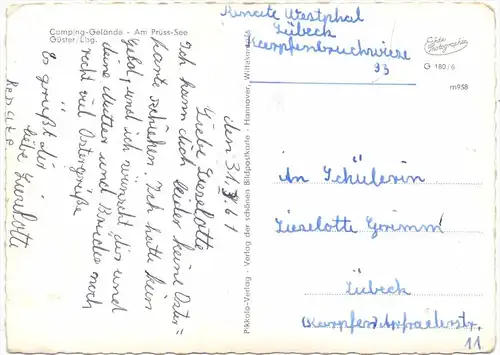 Camping-Gelände - Am Prüss-See
Güster/Lbg.
den 31.3.61
Liebe Lieselotte
Ich kann dich leider keine Oster=
karte schicken. Ich hatte kein
Geld, und ich wünscht dir und
deine Mutter und Brüder noch
recht viel Ostergrüße
Es grüßt dir
liebe Lieselotte
Renate
Pikkolo-Verlag - Verlag der schönen Bildpostkarte - Hannover,
Renate Westphal
Lübeck
Karpfenbruchwiese
93
Echte Photographie
G 180/6
m958
An Schülerin
Lieselotte Grimm
Lübeck
11